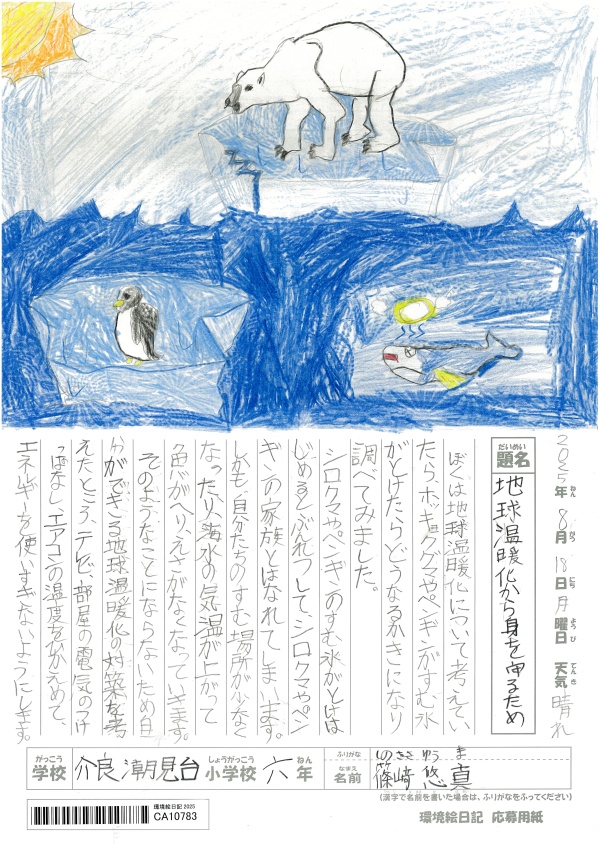 2025年 8月 18日 月曜日 天気 晴れ
ねん がつ にち ようび てんき
だいめい
題名
地球温暖化から身を守るため
ぼくは地球温暖化について考えてい
たらホッキョクグマやペンギンがすむ氷
がとけたらどうなるかきになり
調べてみました。
シロクマやペンギンのすむ氷がとけは
じめるとぶんれつしてシロクマやペン
ギンの家族とはなれてしまいます。
しかも、自分たちのすむ場所が少なく
なったり、海水の気温が上がって
魚がへり、えさがなくなっていきます。
そのようなことにならないため自
分ができる地球温暖化の対策を考
えたところ、テレビ、部屋の電気のつけ
っぱなし、エアコンの温度をひかえめて、
エネルギーを使いすぎないようにします。
がっこう
学校
介良潮見台
しょうがっこう
小学校
六
ねん
年
ふりがな
しのざき ゆう ま
なまえ
名前
篠﨑 悠真
(漢字で名前を書いた場合は、ふりがなをふってください)
環境絵日記 2025
CA10783
環境絵日記 応募用紙